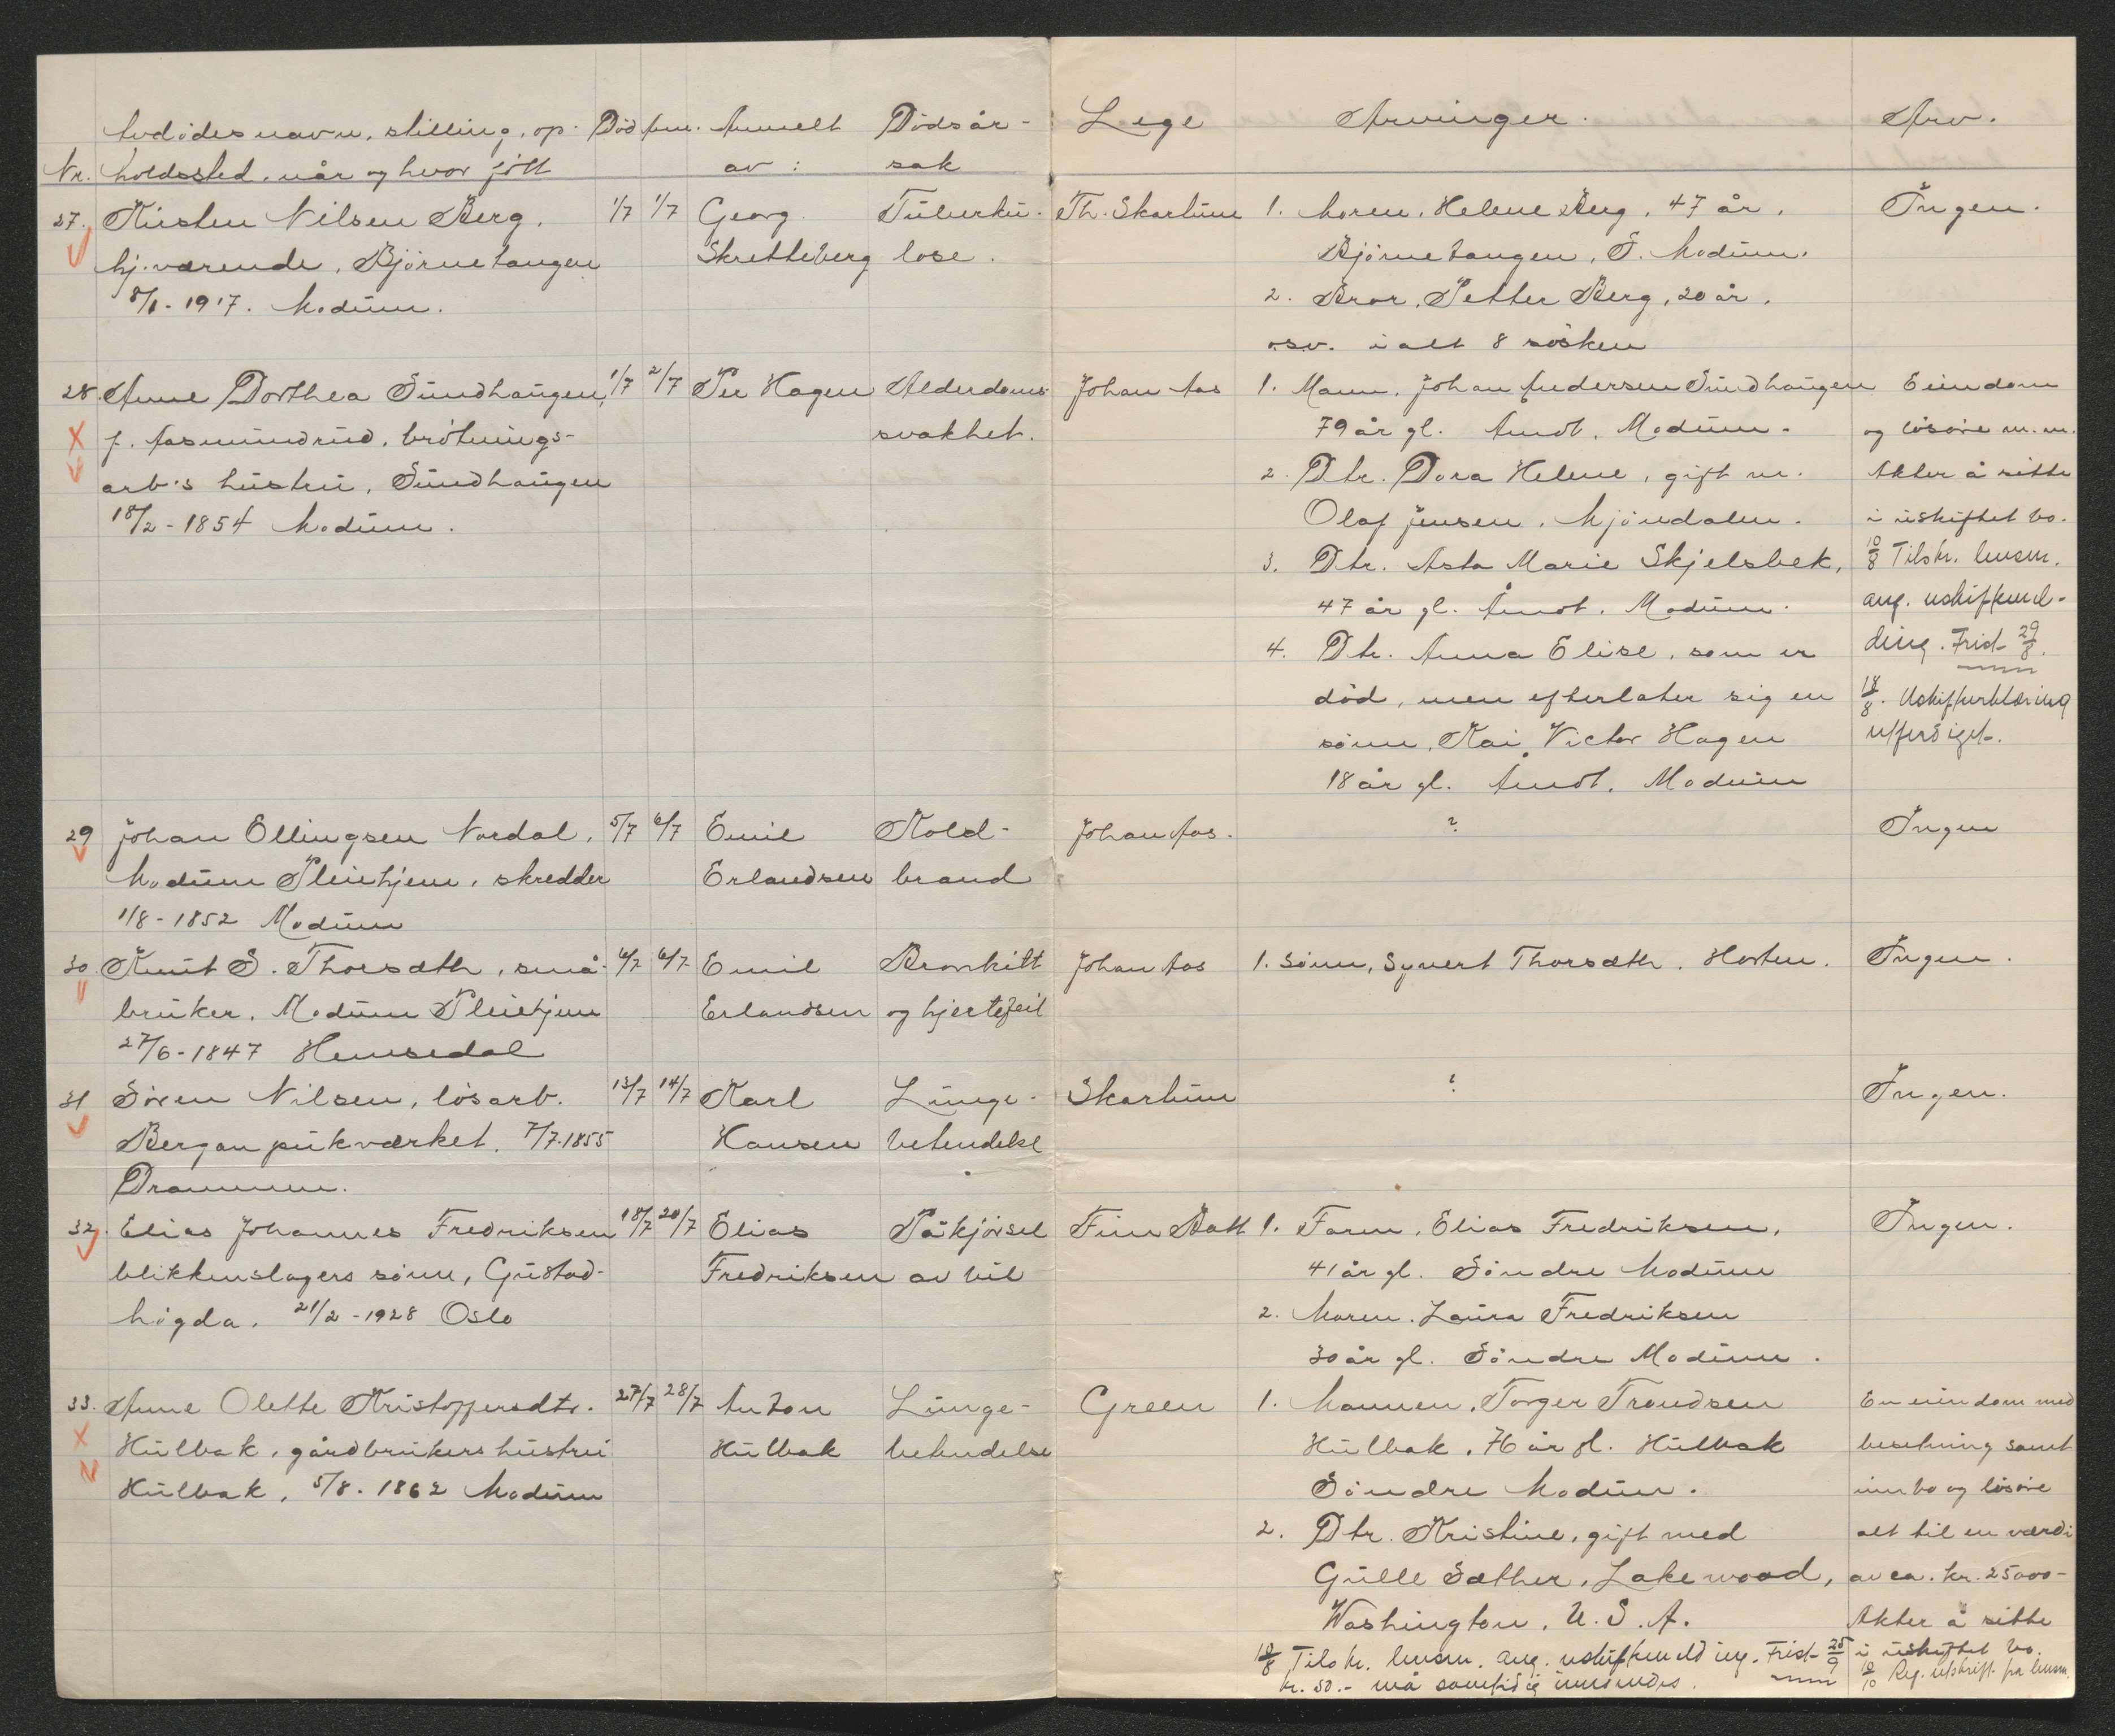 Avdødes navn, stilling, op- Død Anm. Anmelt Dødsår-
Nr. holdssted, når og hvor født av: sak
27. Kirsten Nilsen Berg, 1/7 1/7 Georg Tuberku-
hj.værende, Bjørnetangen Skretteberg lose.
8/1-1917. Modum.
28. Anne Dorthea Sundhaugen, 1/7 2/7 Per Hagen Alderdoms-
f. Aasmundrud, brøtnings- svakhet.
arb's hustru, Sundhaugen
18/2-1854 Modum.
29 Johan Ellingsen Nordal, 5/7 6/7 Emil Kold-
Modum Pleiehjem, skredder Erlandsen brand
1/8-1852 Modum
30. Knut S. Thorsæth, små- 6/7 6/7 Emil Bronkitt
bruker, Modum Pleiehjem Erlandsen og hjertefeil
27/6-1847 Hemsedal
31 Sören Nilsen, løsarb. 13/7 14/7 Karl Lunge-
Bergan pukværket. 7/7-1855 Hansen betendelse
Drammen.
32. Elias Johannes Fredriksen 18/7 20/7 Elias Påkjørsel
blikkenslagers sønn, Gustad- Fredriksen av bil
høgda. 21/2-1928 Oslo
33. Anne Olette Kristoffersdtr. 27/7 28/7 Anton Lunge-
Hulbak, gårdbrukers hustru Hulbak betendelse
Hulbak, 5/8-1862 Modum
Lege Arvinger. Arv.
Th. Skarhum 1. Moren, Helene Berg, 47 år, Ingen.
Bjørnetangen, S. Modum.
2. Bror, Petter Berg, 20 år,
osv. i alt 8 søsken
Johan Aas 1. Mann, Johan Andersen Sundhaugen Eiendom
79 år gl. Åmot, Modum. og løsøre m.m.
2. Dtr. Dora Helene, gift m. Akter å sitte
Olaf Jensen, Mjøndalen. i uskiftet bo.
3. Dtr. Asta Marie Skjelsbek, 18/8 Tilskr. lensm.
47 år gl. Åmot, Modum. ang. uskiftemel-
4. Dtr. Anna Elise, som er ding. Frist 29/8.
død, men efterlater sig en 18/8. Uskifteerklæring
sønn, Kai Victor Hagen utferdiget.
18 år gl. Åmot, Modum
Johan Aas. ? Ingen
Johan Aas 1. Sønn, Syvert Thorsæth, Horten. Ingen.
Skarhum ? Ingen.
Finn Batt 1. Faren, Elias Fredriksen, Ingen.
41 år gl. Søndre Modum
2. Moren, Laura Fredriksen
30 år gl. Søndre Modum.
Green 1. Mannen, Torger Trondsen En eiendom med
Hulbak, 76 år gl. Hulbak besetning samt
Søndre Modum. innbo og løsøre
2. Dtr. Kristine, gift med alt til en værdi
Gulle Sæther, Lakewood, av ca. kr. 25000-
Washington, U.S.A. Akter å sitte
18/8 Tilskr. lensm. ang. uskiftemelding. Frist 25/9 i uskiftet bo.
kr. 50.- må samtidig innsendes. 10/10 Reg. utskrift fra lensm.